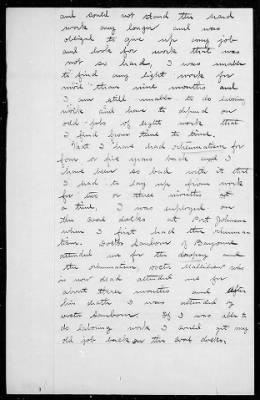 and could not stand the hard
work any longer and was
obliged to give up my job
and look for work that was
not so hard, I was unable
to find any light work for
more than nine months and
I am still unable to do laboring
work and have to depend on
odd jobs of light work that
I find from time to time.
That I have had rheumatism for
four or five years back and I
have been so bad with it that
I had to lay up from work
for two or three months at
a time. I was employed on
the coal docks at Port Johnson
when I first had the rheuma
tism. Doctor Sanborn of Bayonne
attended me for the dropsy and
the rheumatism. Doctor who
is now dead attended me for
about three months and after
his death I was attended by
Doctor Sanborn. If I was able to
do laboring work I could get my
old job back on the coal docks.